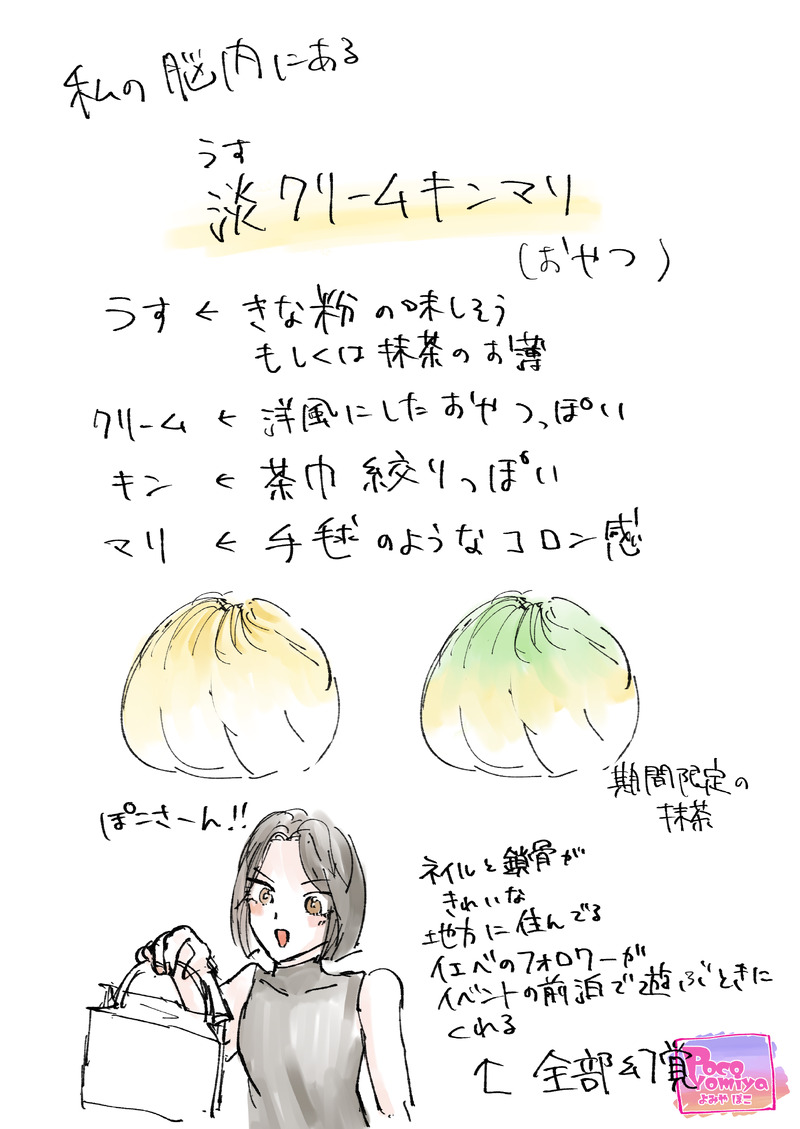 私の脳内にある
うす
淡クリームキンマリ
(おやつ)
うす ← きな粉の味しそう
もしくは抹茶のお薄
クリーム ← 洋風にしたおやつっぽい
キン ← 茶巾絞りっぽい
マリ ← 手毬のようなコロン感
期間限定の
抹茶
ぽこさーん!!
ネイルと鎖骨が
きれいな
地方に住んでる
イエベのフォロワーが
イベントの前泊で遊ぶときに
くれる
↑ 全部幻覚
Poco
Yomiya
よみや ぽこ